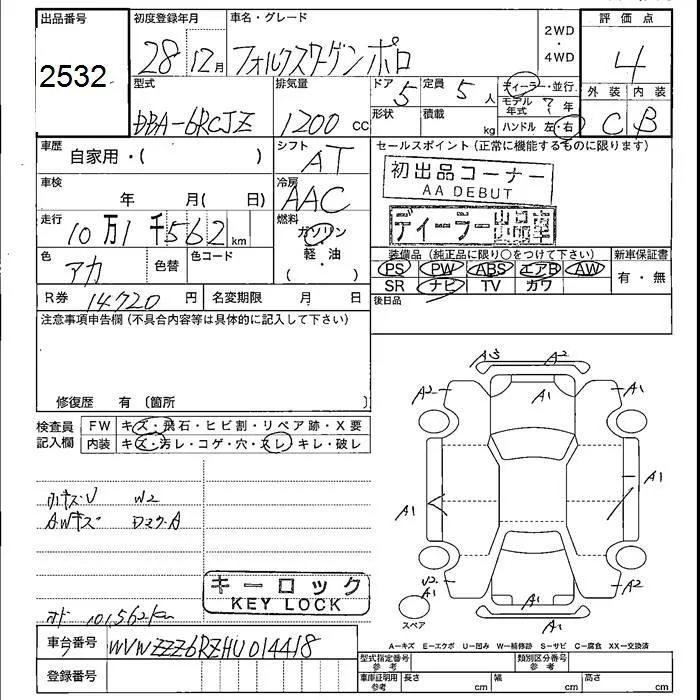 出品番号 初度登録年月 車名・グレード 2WD ・ 4WD 評価点
2532 28 12月 フォルクスワーゲン ポロ 4
型式 排気量 ドア 5 定員 5 人 ディーラー・並行 外装 内装
DBA-6RCJZ 1200 cc 形状 積載 kg モデル年式 7年 C B
ハンドル 左・右
車歴 自家用・( ) シフト AT セールスポイント(正常に機能するものに限ります)
初出品コーナー
AA DEBUT
車検 年 月( 日) 冷房 AAC
ディーラー出品車
走行 10万1千562km 燃料 ガソリン・軽油・( )
装備品(純正品に限り○をつけて下さい) 新車保証書
色 アカ 色替 色コード
PS PW ABS エアB AW 有・無
SR ナビ TV カワ
R券 14,720 円 名変期限 月 日 後日品
注意事項申告欄(不具合内容等は具体的に記入して下さい)
修復歴 有 〔箇所 〕
検査員記入欄 FW キズ・飛石・ヒビ割・リペア跡・X要
内装 キズ・汚レ・コゲ・穴・スレ・キレ・破レ
A3 A2
A2 A1
A1 A1
W2
AWキズ
U2 A1 A1 A2
A1
スペア
キーロック
KEY LOCK
101,562km
A−キズ E−エクボ U−凹み W−補修跡 S−サビ C−腐食 XX−交換済
車台番号 WVWZZZ6RZHU014418
型式指定番号 参考 類別区分番号 参考
登録番号 車庫証明用 参考 長さ cm 幅 cm 高さ cm